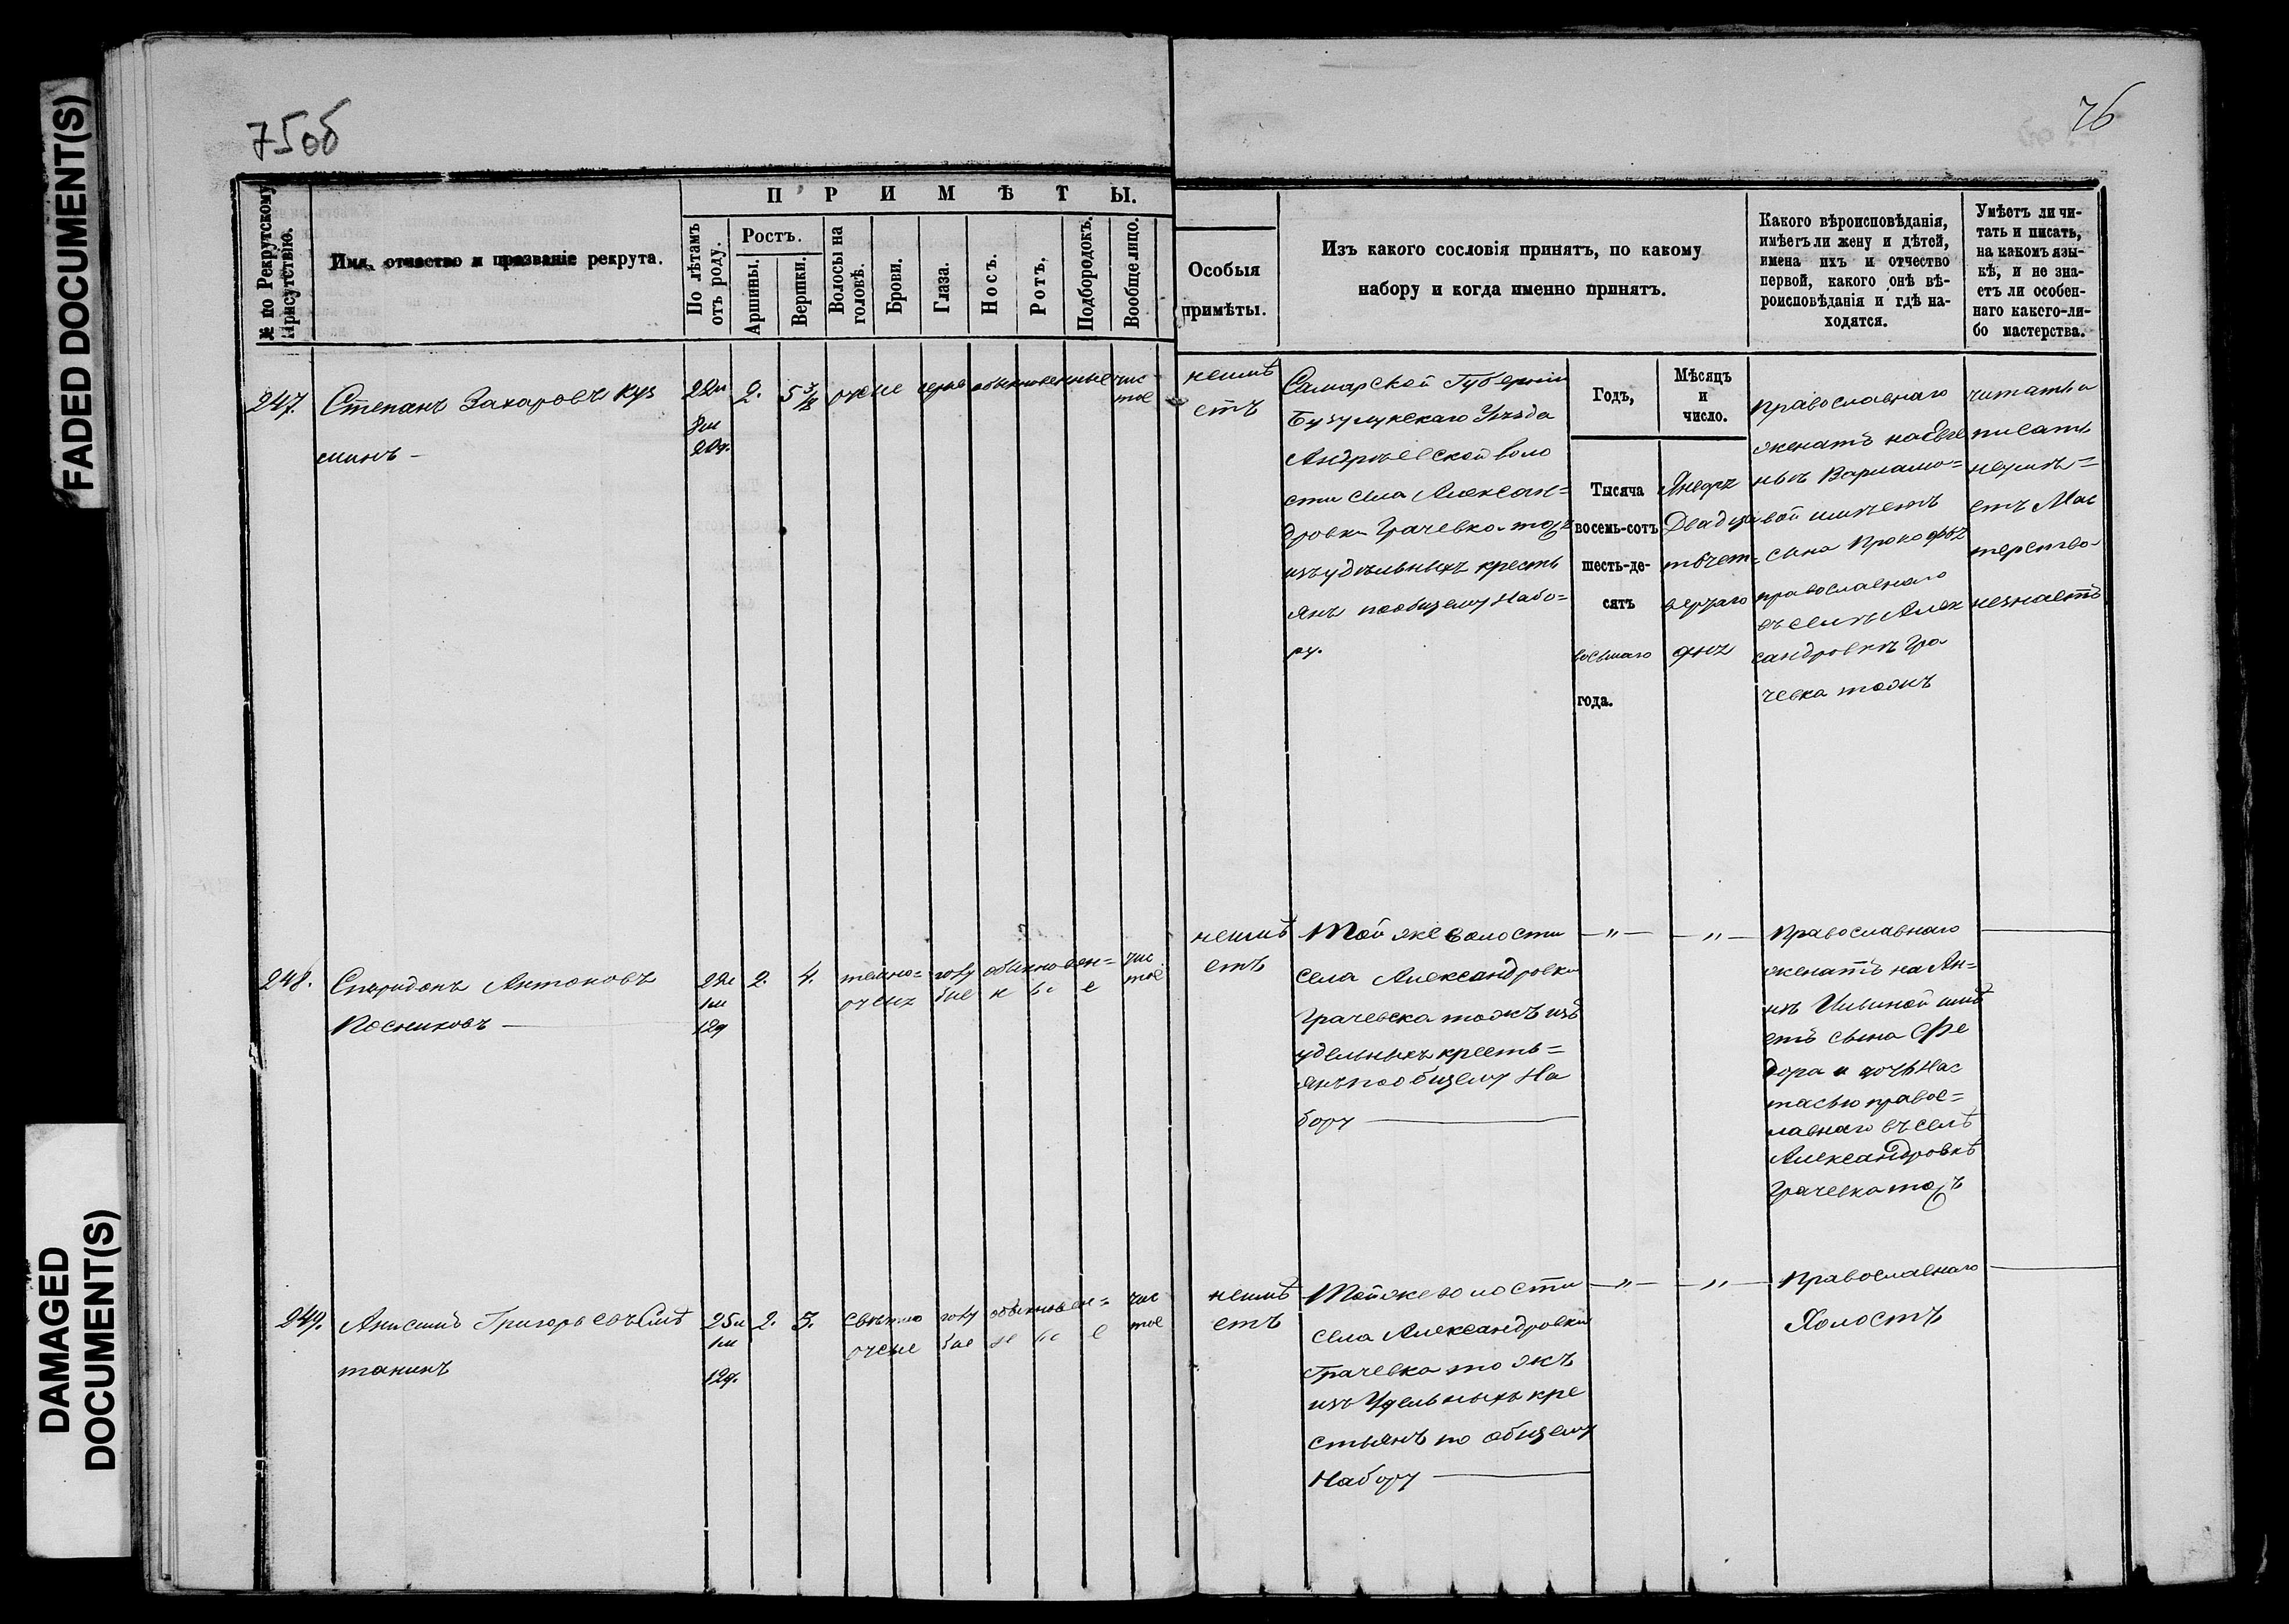 FADED DOCUMENT(S)
DAMAGED
DOCUMENT(S)
75об
76
№ по Рекрутскому
Присутствію.
Имя, отчество и прозваніе рекрута.
ПРИМѢТЫ.
По лѣтамъ
отъ роду.
Ростъ.
Аршины.
Вершки.
Волосы на
головѣ.
Брови.
Глаза.
Носъ.
Ротъ.
Подбородокъ.
Вообще лицо.
Особыя
примѣты.
Изъ какого сословія принятъ, по какому
набору и когда именно принятъ.
Какого вѣроисповѣданія,
имѣетъ ли жену и дѣтей,
имена ихъ и отчество
первой, какого онѣ вѣ-
роисповѣданія и гдѣ на-
ходятся.
Умѣетъ ли чи-
тать и писать,
на какомъ язы-
кѣ, и не зна-
етъ ли особен-
наго какого-ли-
бо мастерства.
247.
Степанъ Захаровъ Куз
минъ
22л
20д.
2.
5 3/8
русые
серые
обыкновенные
чис
тое
неимѣ
етъ
Самарской Губерніи
Бузулукскаго Уѣзда
Андрѣевской воло
сти села Алексан=
дровки Грачевка тожъ
изъ удѣльныхъ кресть
янъ пообщему набо=
ру.
Годъ,
Тысяча
восемь-сотъ
шесть-де-
сятъ
восьмаго
года.
Мѣсяцъ
и
число.
Январь
Двадца
тьчет=
вертаго
дня
православнаго
женатъ на Евге
ньѣ Варламо=
вой имѣетъ
сына Прокофья
православнаго
въ селѣ Алек
сандровкѣ Гра
чевка тожъ
читать и
писать
неумѣ=
етъ Мас
терства
незнаетъ
248.
Спиридонъ Антоновъ
Посниковъ
22л
1м
12д
2.
4.
темно=
русых
голу
бые
обыкновен=
н ы е
чис
тое
неимѣ
етъ
Той же волости
села Александровки
Грачевка тожъ изъ
удельныхъ кресть=
янъ по общему на
бору
— " —
— " —
Православнаго
женатъ на Ан=
нѣ Ильиной имѣ
етъ сына Фе
дора и дочь Нас
тасью правос=
лавнаго въ селѣ
Александровкѣ
Грачевка тожъ
249.
Анисимъ Григорьевъ Смѣ
танинъ
25л
1м
12д.
2.
5.
свѣтло
русые
голу
бые
обыкновен=
н ы е
чис
тое
неимѣ
етъ
Тойже волости
села Александровки
Грачевка тожъ
изъ Удельныхъ кре
стьянъ по общему
Набору
— " —
— " —
Православнаго
Холостъ